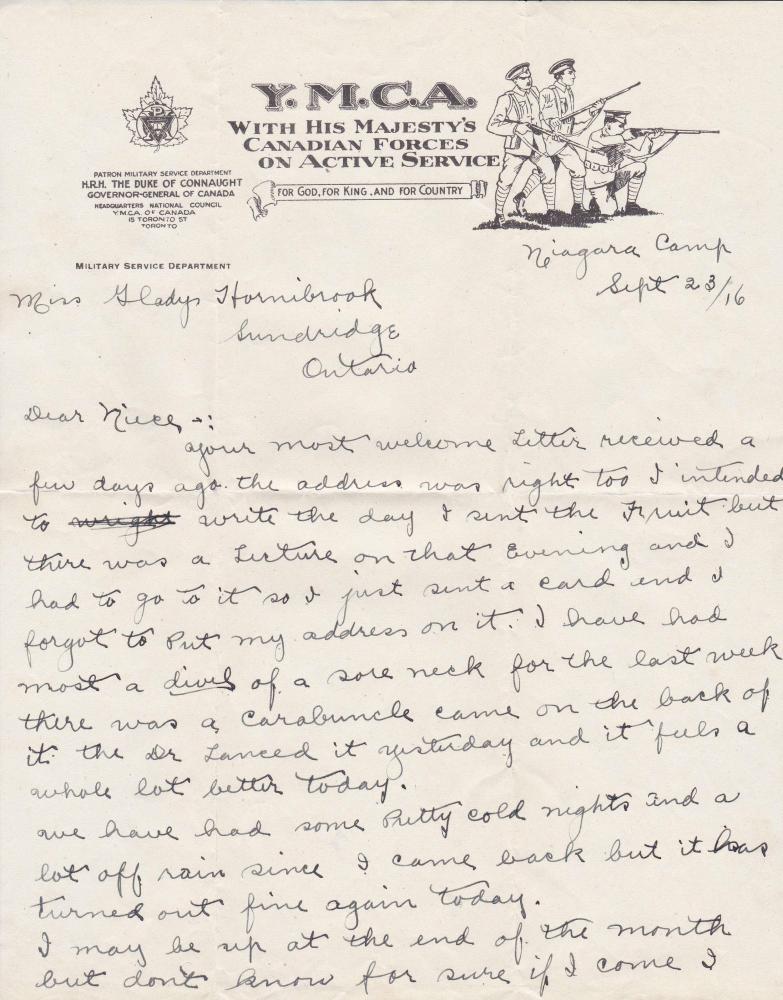 Y.M.C.A.
WITH HIS MAJESTY'S
CANADIAN FORCES
ON ACTIVE SERVICE
FOR GOD, FOR KING, AND FOR COUNTRY
PATRON MILITARY SERVICE DEPARTMENT
H.R.H. THE DUKE OF CONNAUGHT
GOVERNOR-GENERAL OF CANADA
HEADQUARTERS NATIONAL COUNCIL
Y.M.C.A. OF CANADA
15 TORONTO ST
TORONTO
MILITARY SERVICE DEPARTMENT
Niagara Camp
Sept 23/16
Miss Gladys Hornibrook
Sundridge
Ontario
Dear Niece -:
your most welcome Letter received a
few days ago. the address was right too I intended
to wright write the day I sent the Fruit but
there was a Lecture on that Evening and I
had to go to it so I just sent a card end I
forgot to Put my address on it. I have had
most a divel of a sore neck for the last week
there was a Carabuncle came on the back of
it. the Dr Lanced it yesterday and it feels a
whole lot better today.
we have had some Pretty cold nights and a
lot off rain since I came back but it has
turned out fine again today.
I may be up at the end of the month
but don't know for sure if I come I